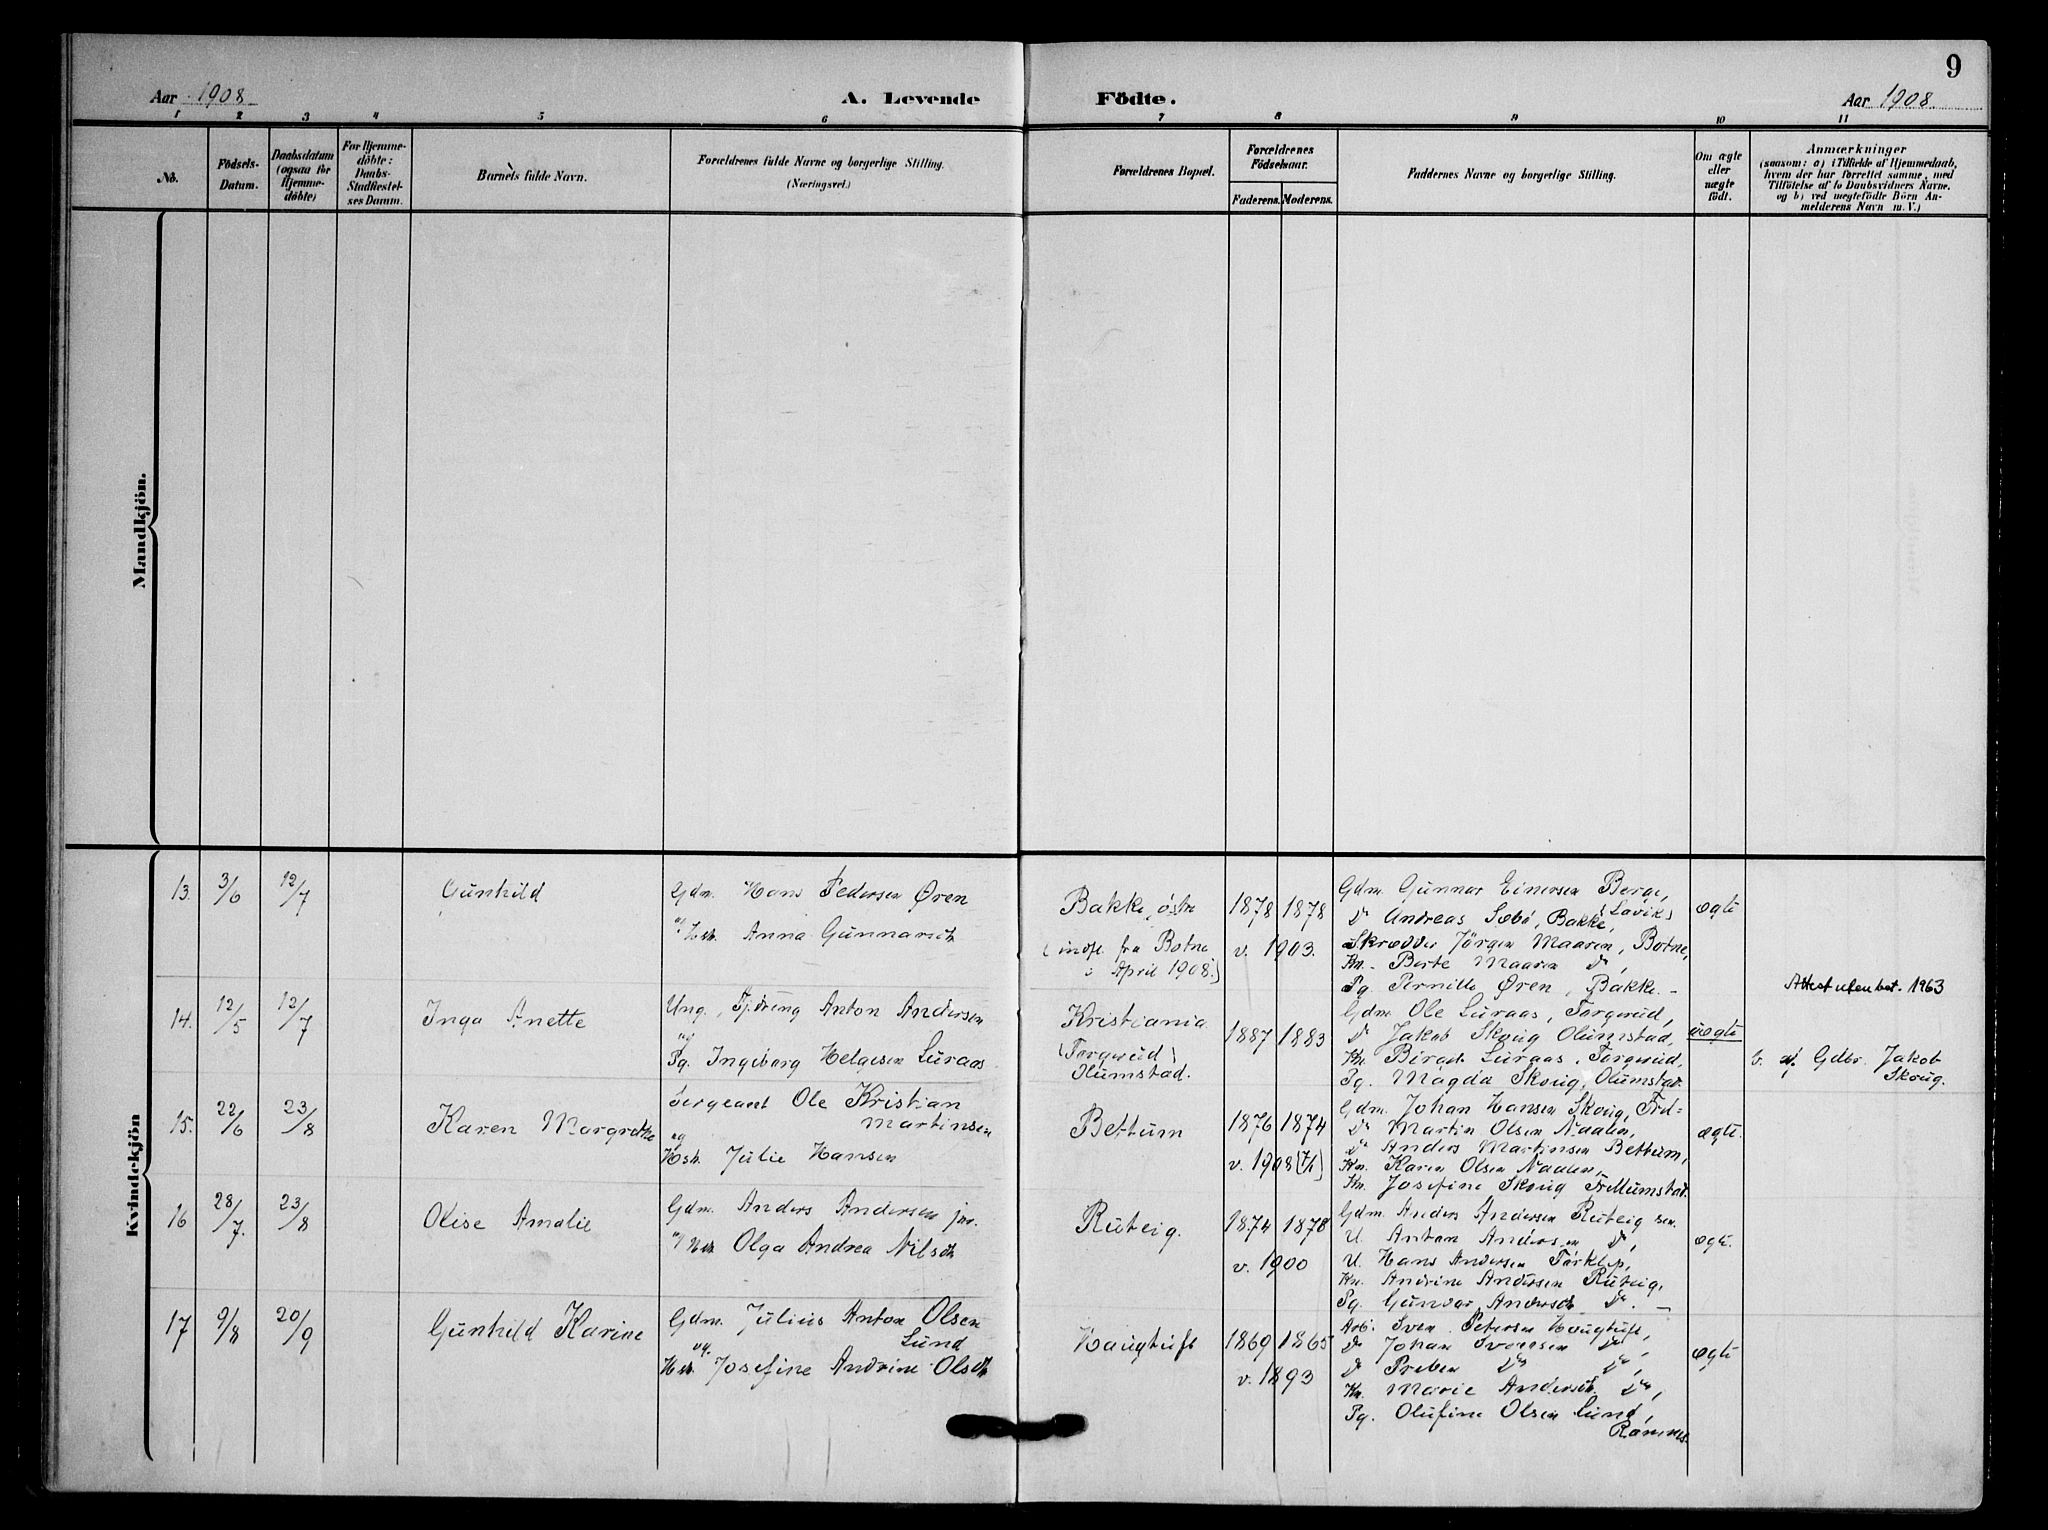 9
Aar 1908 A. Levende Födte. Aar 1908
1 2 3 4 5 6 7 8 9 10 11
No.
Födsels-
Datum.
Daabsdatum
(ogsaa for
Hjemme-
döbte)
For Hjemme-
döbte:
Daabs-
Stadfæstel-
ses Datum.
Barnets fulde Navn.
Forældrenes fulde Navne og borgerlige Stilling.
(Næringsvei.)
Forældrenes Bopæl.
Forældrenes
Födselsaar.
Faderens. Moderens.
Faddernes Navne og borgerlige Stilling.
Om ægte
eller
uægte
födt.
Anmærkninger
(saasom: a) i Tilfælde af Hjemmedaab,
hvem der har forrettet samme, med
Tilföielse af to Daabsvidners Navne.
og b) ved uægtefödte Börn An-
melderens Navn m. V.)
Mandkjön.
Kvindekjön
13. 3/6 12/7 Gunhild
Gdm. Hans Pedersen Øren
o/ Hstr. Anna Gunnarsdt
Bakke, østre
(indfl. fra Botne
i April 1908.)
1878 1878
v. 1903.
Gdm. Gunnar Einersen Berge,
(Lavik)
Do Andreas Sæbö, Bakke,
Skrædder Jørgen Maaren, Botne,
Kn. Berte Maaren do,
Pg. Pernille Øren, Bakke.
ægte
14. 12/5 12/7 Inga Anette
Ung., Anton Andersen
og
Pg. Ingeborg Helgesen Luraas
Kristiania
(Torgerud)
Olumstad.
1887 1883
Gdm. Ole Luraas, Torgerud,
Do Jakob Skoug Olumstad,
Kn. Luraas, Torgerud,
Pg. Magda Skoug, Olumstad
uægte
Attest uten bet. 1963
v. Gdbr. Jakob
Skoug.
15. 22/6 23/8 Karen Margrethe
Sergeant Ole Kristian
Martinsen
og
Hstr. Julie Hansen
Bettum
1876 1874
v. 1908 (7/1)
Gdm. Johan Hansen Skoug,
Do Martin Olsen Naalen,
Do Anders Martinsen Bettum,
Kn. Karen Olsen Naalen,
Kn. Josefine Skoug
ægte.
16 28/7. 23/8 Olise Amalie
Gdm. Anders Andersen jnr.
o/ Hstr. Olga Andrea Nilsdt
Ruteig.
1874 1878
v. 1900
Gdm. Anders Andersen Ruteig sen.
U. Anton Andersen do,
U. Hans Andersen Torklep,
Kn. Andrine Andersen Ruteig,
Pg. Gunvor Andersdt. do.
ægte.
17 9/8 20/9 Gunhild Karine
Gdm. Julius Anton Olsen
Lund
og.
Hstr. Josefine Andrine Olsdt
Haugtuft
1869 1865
v. 1893
Arb. Sven Petersen Haugtuft,
Do Johan Svensen do,
Do Preben do do,
Kn. Marie Andersdt. do,
Pg. Olufine Olsen Lund,
Ramnes.
ægte